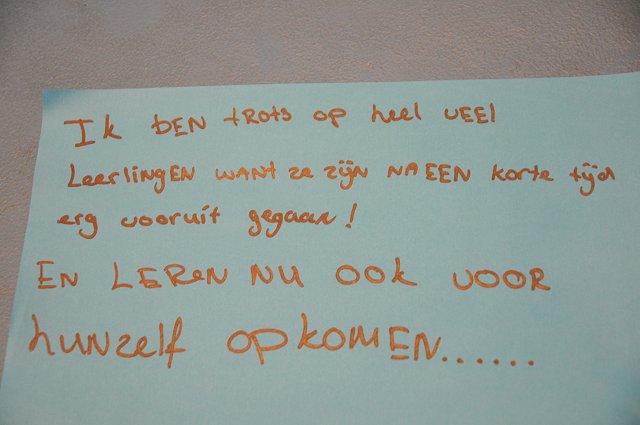 Ik BEN tROtS op heel VEEl
LeerlingEN WANT ze zijn NA EEN korte tijd
erg vooruit gegaan!
EN LEReN NU OOk VOOR
hunzelf opkomen......